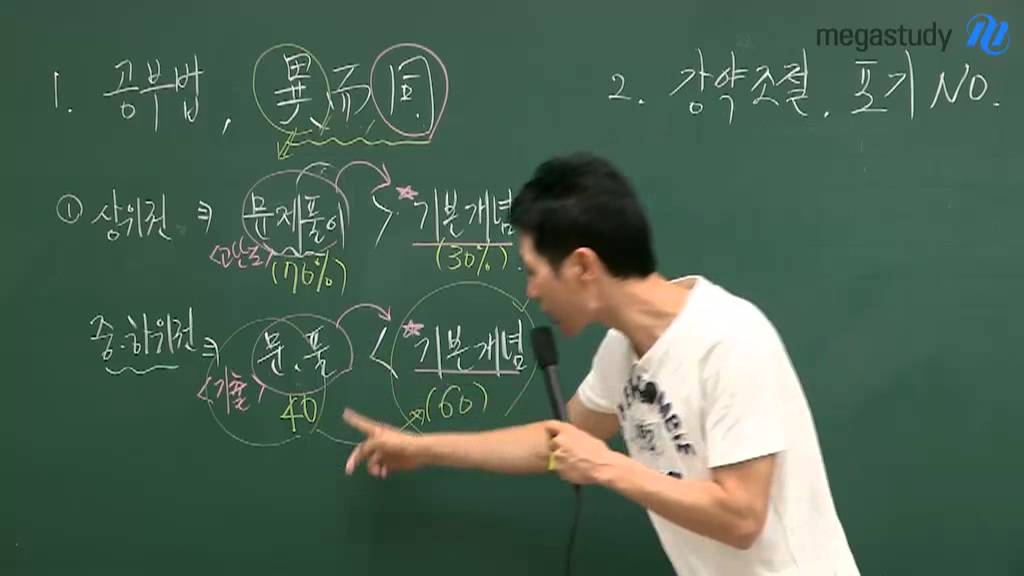 megastudy
1. 공부법, 異而同
2. 강약조절. 포기 No.
① 상위권 ⇒ 문제풀이 > ★기본개념
(70%) (30%)
중·하위권 ⇒ 문.풀 < ★기본개념
<기출> 40 (60)